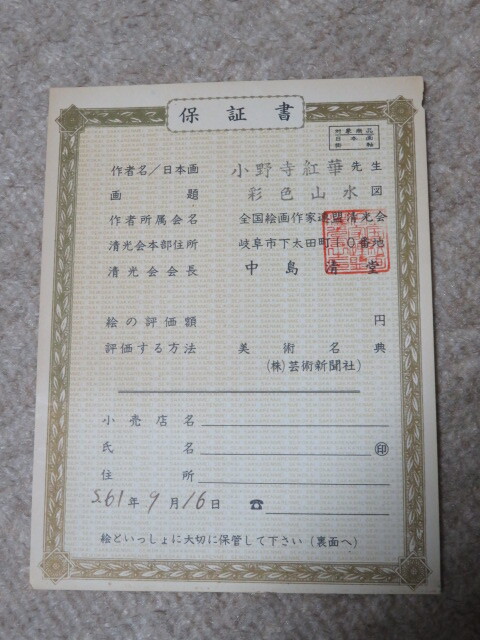 保証書
対象商品
日本画
掛軸
作者名/日本画 小野寺紅華先生
画題 彩色山水図
作者所属会名 全国絵画作家連盟清光会
清光会本部住所 岐阜市下太田町10番地
清光会会長 中島清堂
絵の評価額 円
評価する方法 美術名典
(株)芸術新聞社)
小売店名
氏名 印
住所
S.61年9月16日 ☎
絵といっしょに大切に保管して下さい(裏面へ)